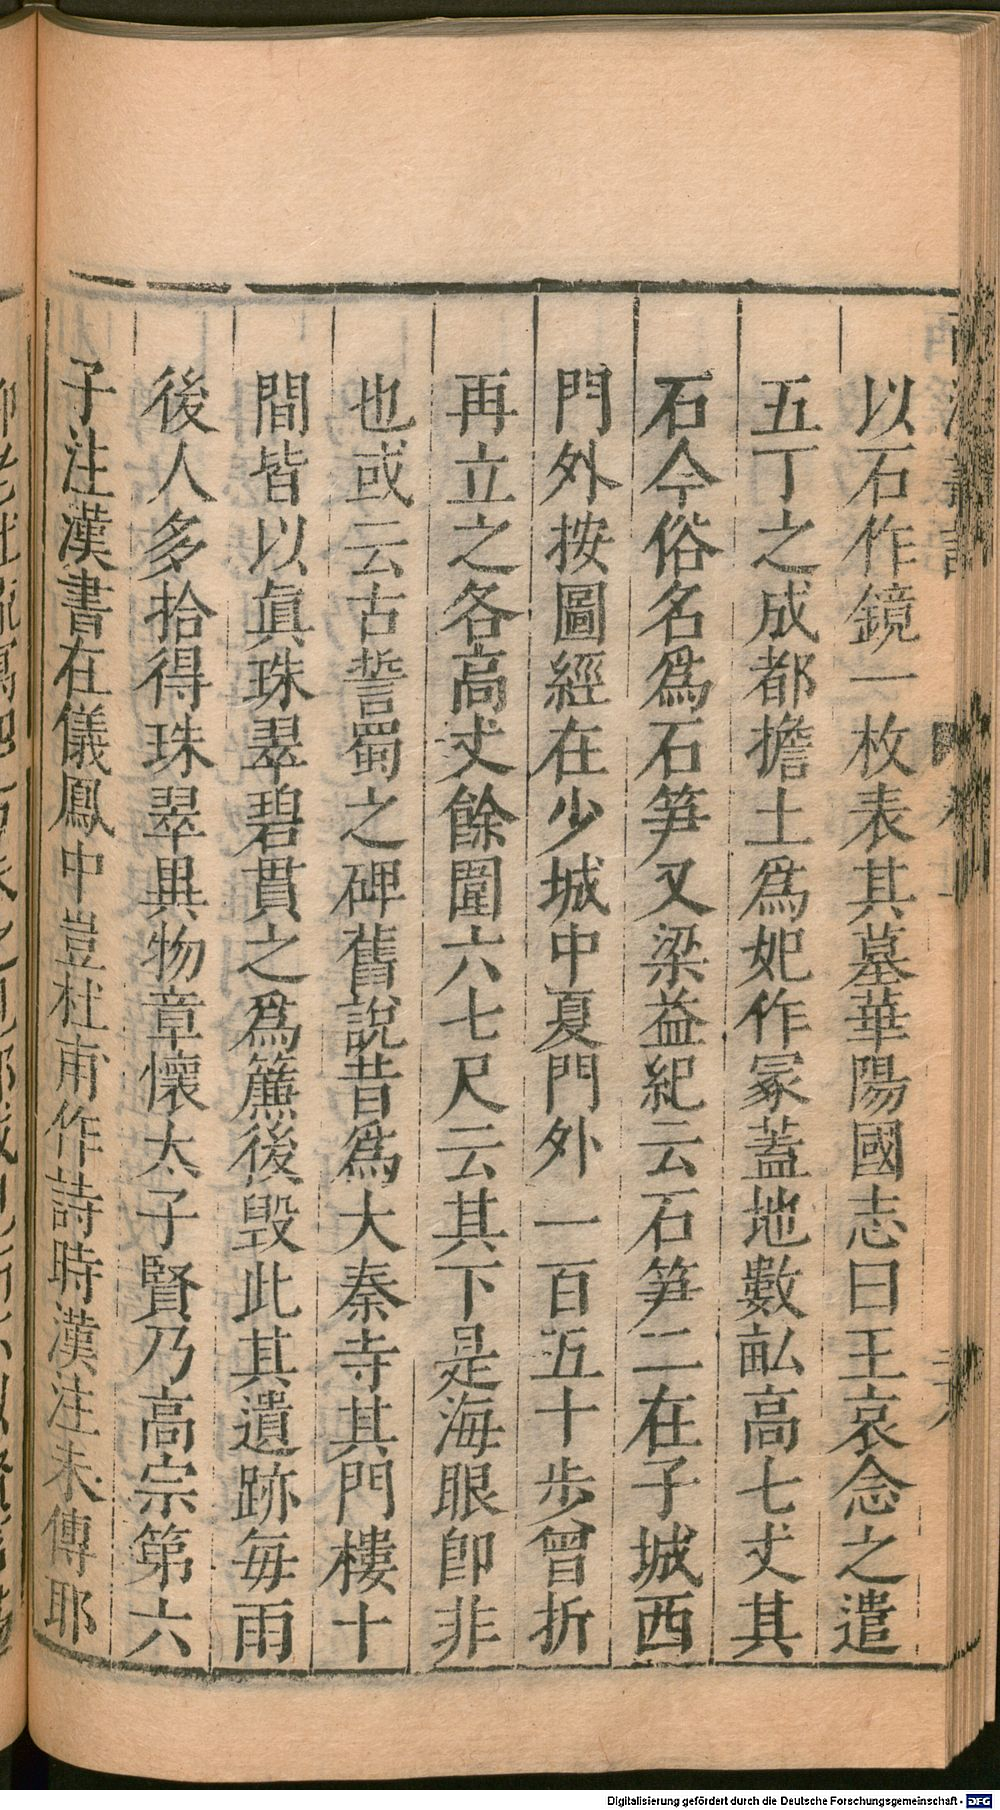 以石作鏡一枚表其墓華陽國志曰王哀念之遣
五丁之成都擔土爲妃作冢蓋地數畝高七丈其
石今俗名爲石笋又梁益紀云石笋二在子城西
門外按圖經在少城中夏門外一百五十步曾折
再立之各高丈餘圍六七尺云其下是海眼卽非
也或云古誓蜀之碑舊說昔爲大秦寺其門樓十
間皆以眞珠翠碧貫之爲簾後毀此其遺跡每雨
後人多拾得珠翠異物章懷太子賢乃高宗第六
子注漢書在儀鳳中豈杜甫作詩時漢注未傳耶
Digitalisierung gefördert durch die Deutsche Forschungsgemeinschaft - DFG